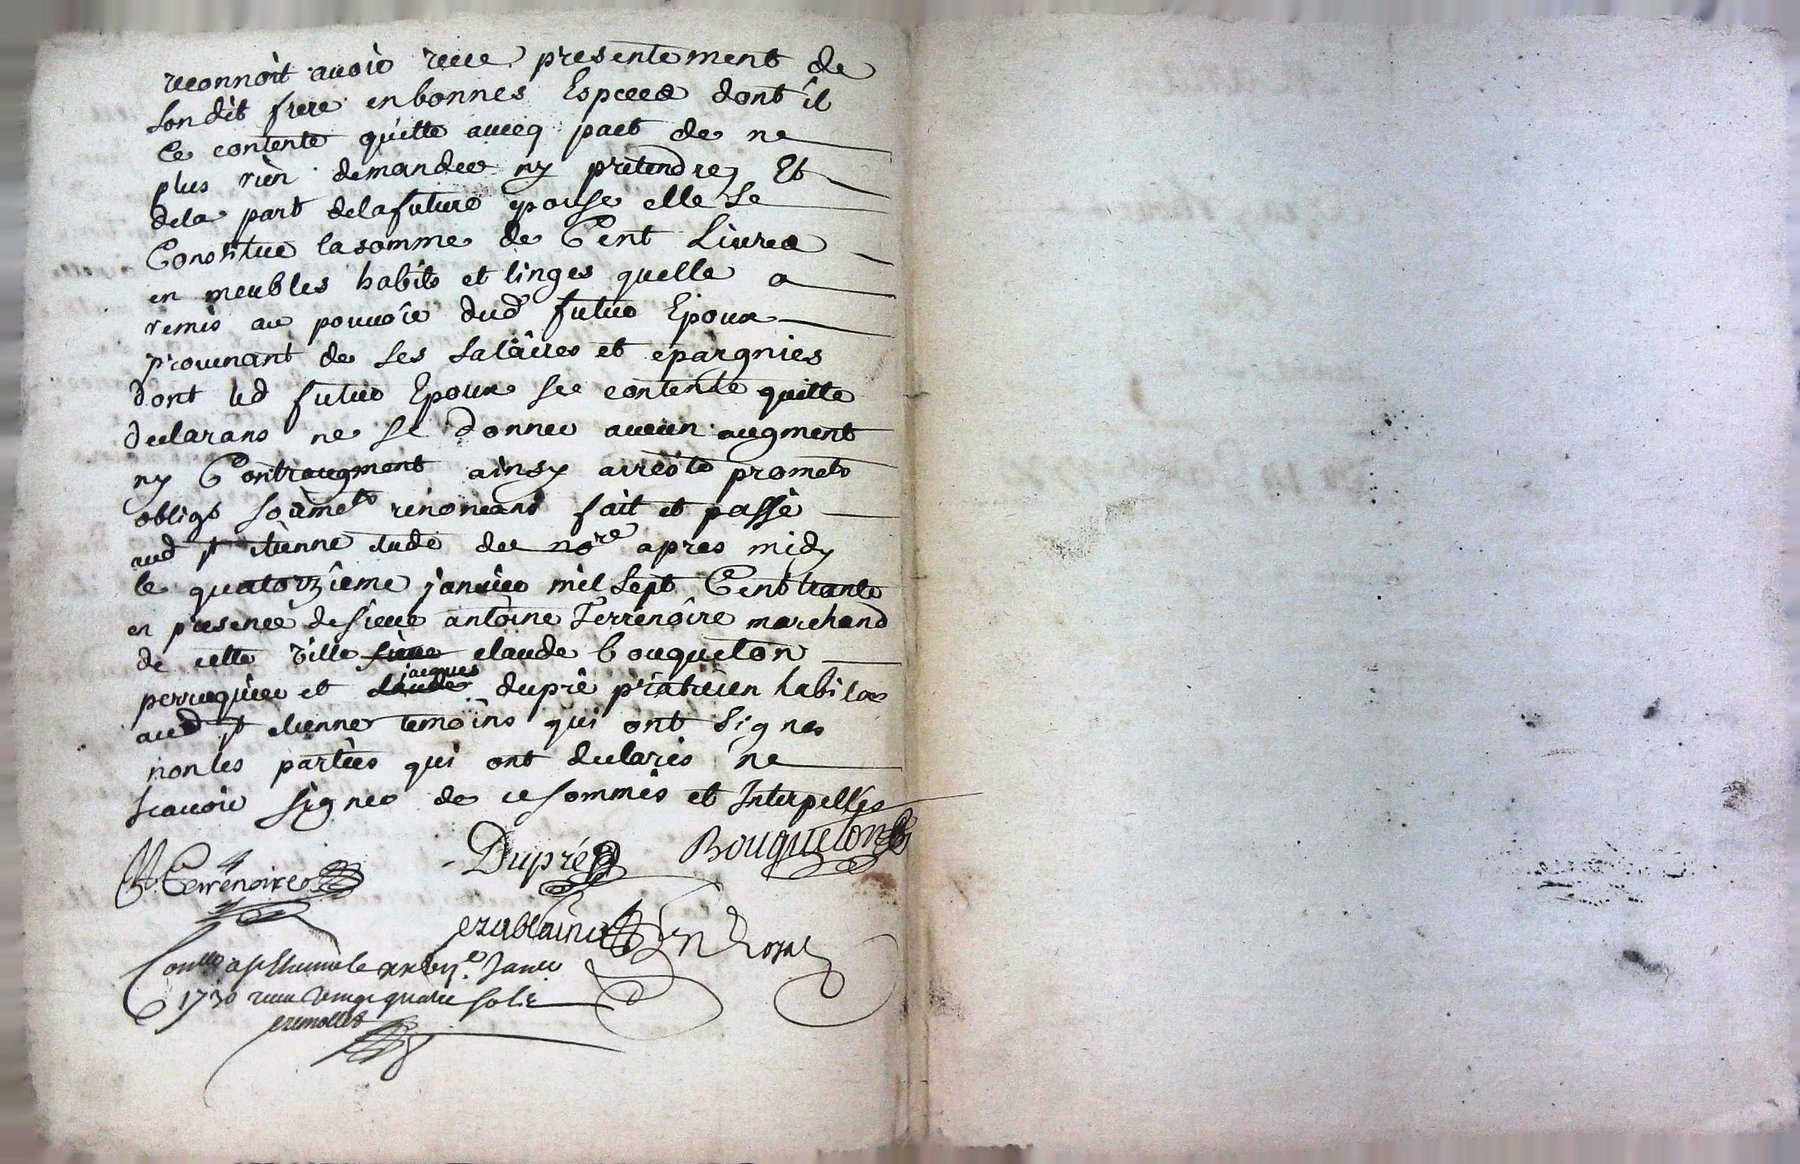 reconnoit avoir receu presentement de
son dit frere en bonnes Especes dont il
se contente quitte avecq pact de ne
plus rien demander ny pretendre Et
de la part de la future epouse elle se
Constitue la somme de Cent Livres
en meubles habits et linges quelle a
remis au pouvoir dud futur Epoux
provenant de ses salaires et epargnies
dont led futur Epoux se contente quitte
declarans ne se donner aucun augment
ny Contraugment ainsy arresté promets
obligs soumets renoncans fait et passé
aud st etienne etude du nore apres midy
le quatorzième janvier mil sept Cent trante
en presence de sieur antoine Terrenoire marchand
de cette ville claude bouqueton
perruquier et jacques dupré praticien habitans
aud st etienne temoins qui ont signes
non les parties qui ont declarés ne
scavoir signer de ce sommés et Interpellés
Terrenoire Dupré Bouqueton
Royal
a st etienne le janvier
1730 receu vingt quatre sols